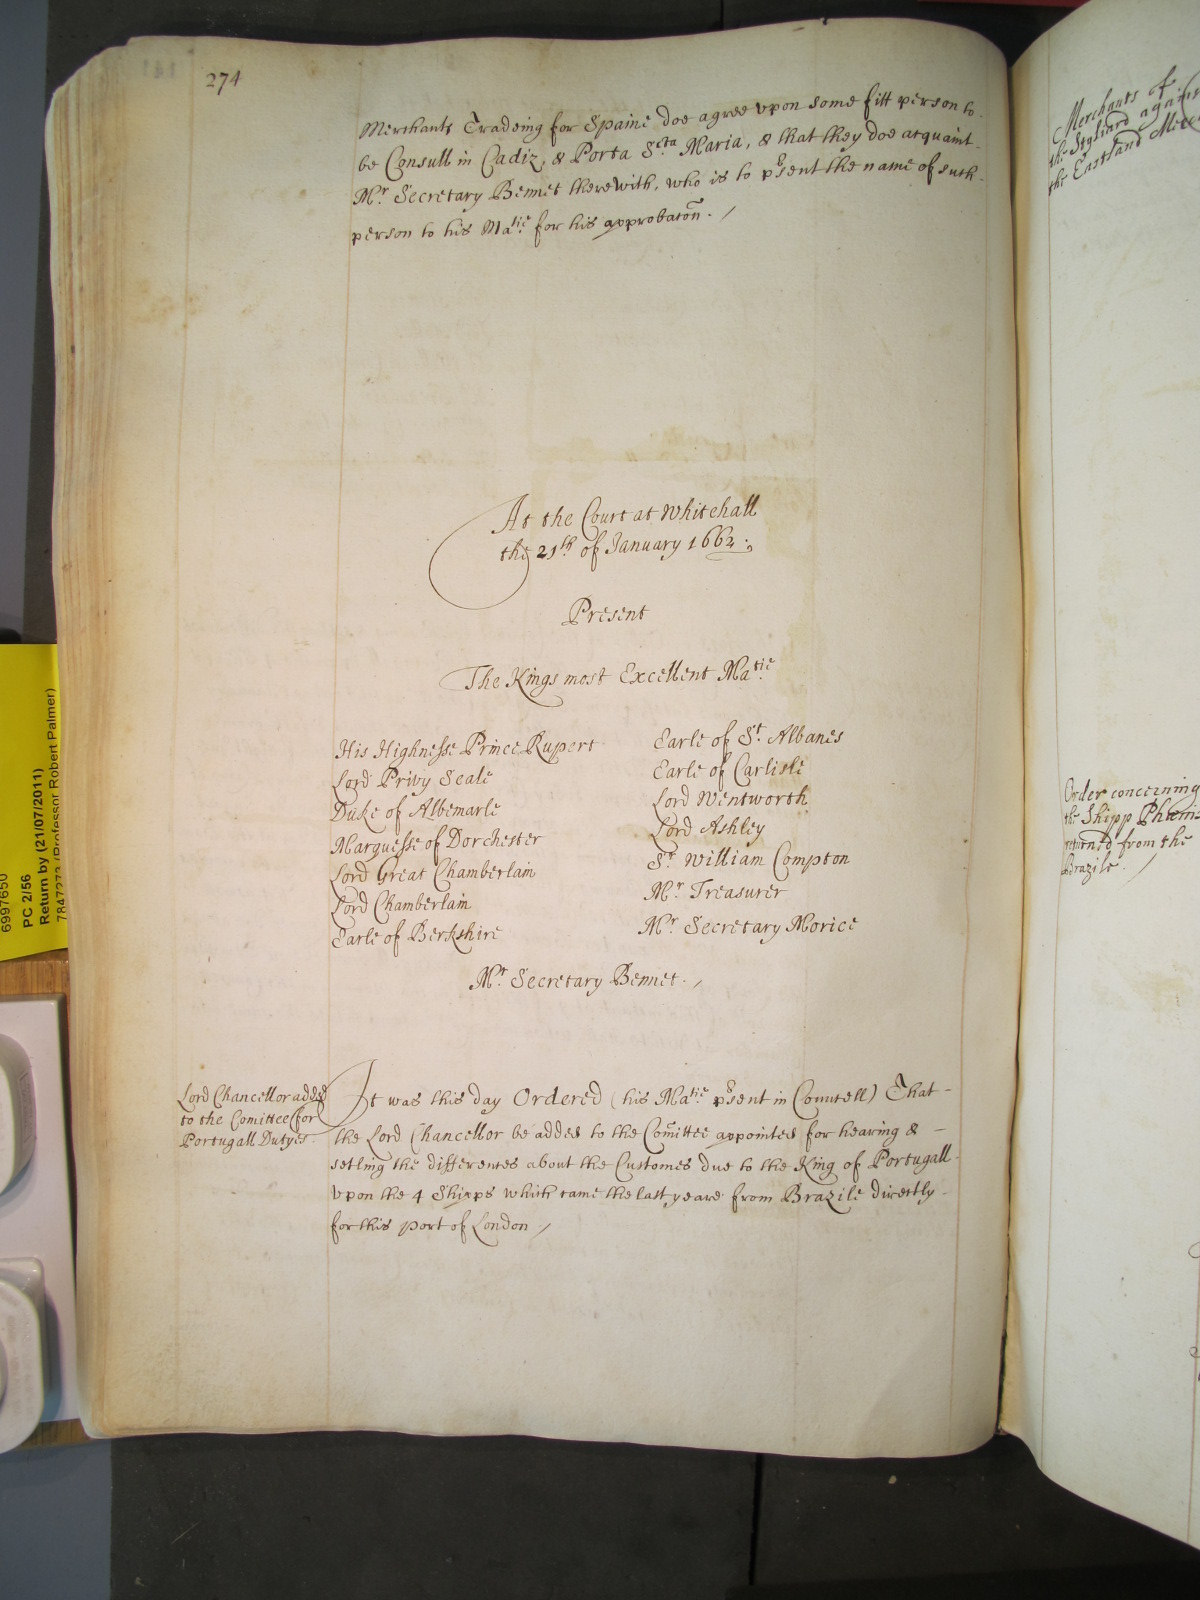 274
Merchants Tradeing for Spaine doe agree vpon some fitt person to
be Consull in Cadiz, & Porta S.cta Maria, & that they doe acquaint
Mr. Secretary Bennet therewith, who is to p̃sent the name of such
person to his Matie. for his approbatõn.
At the Court at Whitehall
the 21th of January 1662.
Present
The Kings most Excellent Matie.
His Highnesse Prince Rupert
Lord Privy Seale
Duke of Albemarle
Marquesse of Dorchester
Lord Great Chamberlain
Lord Chamberlain
Earle of Berkshire
Earle of St. Albanes
Earle of Carlisle
Lord Wentworth
Lord Ashley
Sr. William Compton
Mr. Treasurer
Mr. Secretary Morice
Mr. Secretary Bennet.
Lord Chancellor added
to the Comittee for
Portugall Dutyes
It was this day Ordered (his Matie. p̃sent in Councell) That
the Lord Chancellor be added to the Com̃ittee appointed for hearing &
setling the differences about the Customes due to the King of Portugall
vpon the 4 Shipps which came the last yeare from Brazile directly
for this port of London
Merchants of
the Styliard against
the Eastland
Order concerning
the Shipp
returned from the
Brazile.
6997650
PC 2/56
Return by (21/07/2011)
(Professor Robert Palmer)